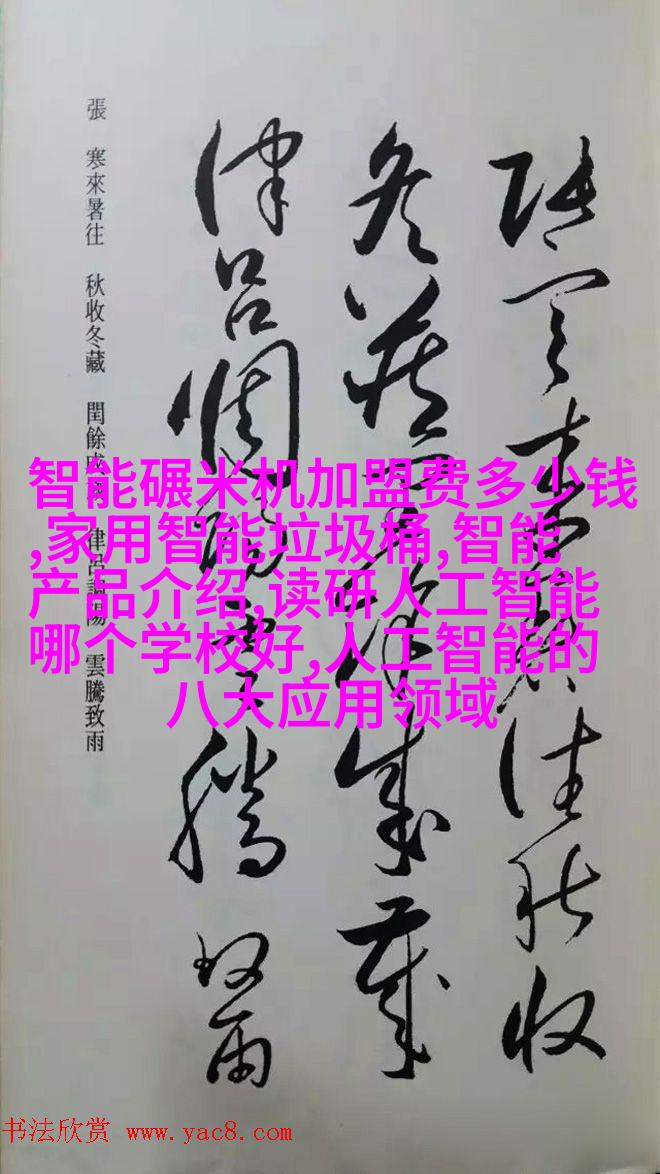 張寒來暑往秋收
冬藏閏餘成歲
律呂調陽雲騰致雨
張 寒來暑往 秋收冬藏 閏餘成歲 律呂調陽 雲騰致雨
智能碾米机加盟费多少钱
,家用智能垃圾桶,智能
产品介绍,读研人工智能
哪个学校好,人工智能的
八大应用领域
书法欣赏 www.yac8.com